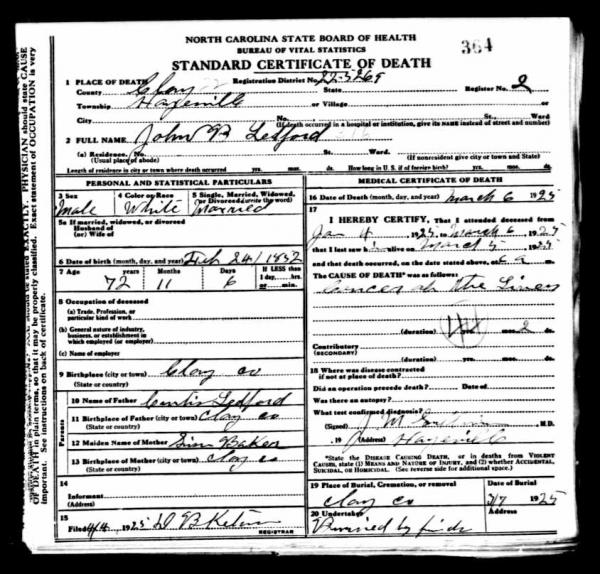 NORTH CAROLINA STATE BOARD OF HEALTH
BUREAU OF VITAL STATISTICS
STANDARD CERTIFICATE OF DEATH
364
PHYSICIAN should state CAUSE OF DEATH in plain terms, so that it may be properly classified. Exact statement of OCCUPATION is very important. See instructions on back of certificate.
1 PLACE OF DEATH Registration District No. 22-5265 Register No. 2
County Clay State
Township Hayesville or Village or
City No. St. Ward
(If death occurred in a hospital or institution, give its NAME instead of street and number)
2 FULL NAME John B Ledford
(a) Residence. No. St. Ward
(Usual place of abode) (If nonresident give city or town and State)
Length of residence in city or town where death occurred yrs. mos. ds. How long in U. S. if of foreign birth? yrs. mos. ds.
PERSONAL AND STATISTICAL PARTICULARS
3 Sex 4 Color or Race 5 Single, Married, Widowed, or Divorced (write the word)
Male White Married
5a If married, widowed, or divorced
Husband of
(or) Wife of
6 Date of birth (month, day, and year) Feb 24 1852
7 Age Years Months Days If LESS than 1 day, hrs. or min.
72 11 6
8 Occupation of deceased
(a) Trade, Profession, or particular kind of work
(b) General nature of industry, business, or establishment in which employed (or employer)
(c) Name of employer
9 Birthplace (city or town) Clay co
(State or country)
Parents
10 Name of Father Curtis Ledford
11 Birthplace of Father (city or town) Clay co
(State or country)
12 Maiden Name of Mother Baker
13 Birthplace of Mother (city or town) Clay co
(State or country)
14
Informant
(Address)
15
Filed 4/4 1925 B
REGISTRAR
MEDICAL CERTIFICATE OF DEATH
16 Date of Death (month, day, and year) March 6 1925
17
I HEREBY CERTIFY, That I attended deceased from
Jan 4 1925, to March 6 1925
that I last saw h alive on March 5 1925
and that death occurred, on the date stated above, at a m.
The CAUSE OF DEATH* was as follows:
Cancer of the Liver
(duration) yrs. mos. 2 ds.
44
Contributory
(SECONDARY)
(duration) yrs. mos. ds.
18 Where was disease contracted
if not at place of death?
Did an operation precede death? Date of
Was there an autopsy?
What test confirmed diagnosis?
(Signed) J M M.D.
, 19 (Address) Hayesville
*State the DISEASE CAUSING DEATH, or in deaths from VIOLENT CAUSES, state (1) MEANS AND NATURE OF INJURY, and (2) whether ACCIDENTAL, SUICIDAL, or HOMICIDAL. (See reverse side for additional space.)
19 Place of Burial, Cremation, or removal Date of Burial
Clay co 3/7 1925
20 Undertaker Address
by